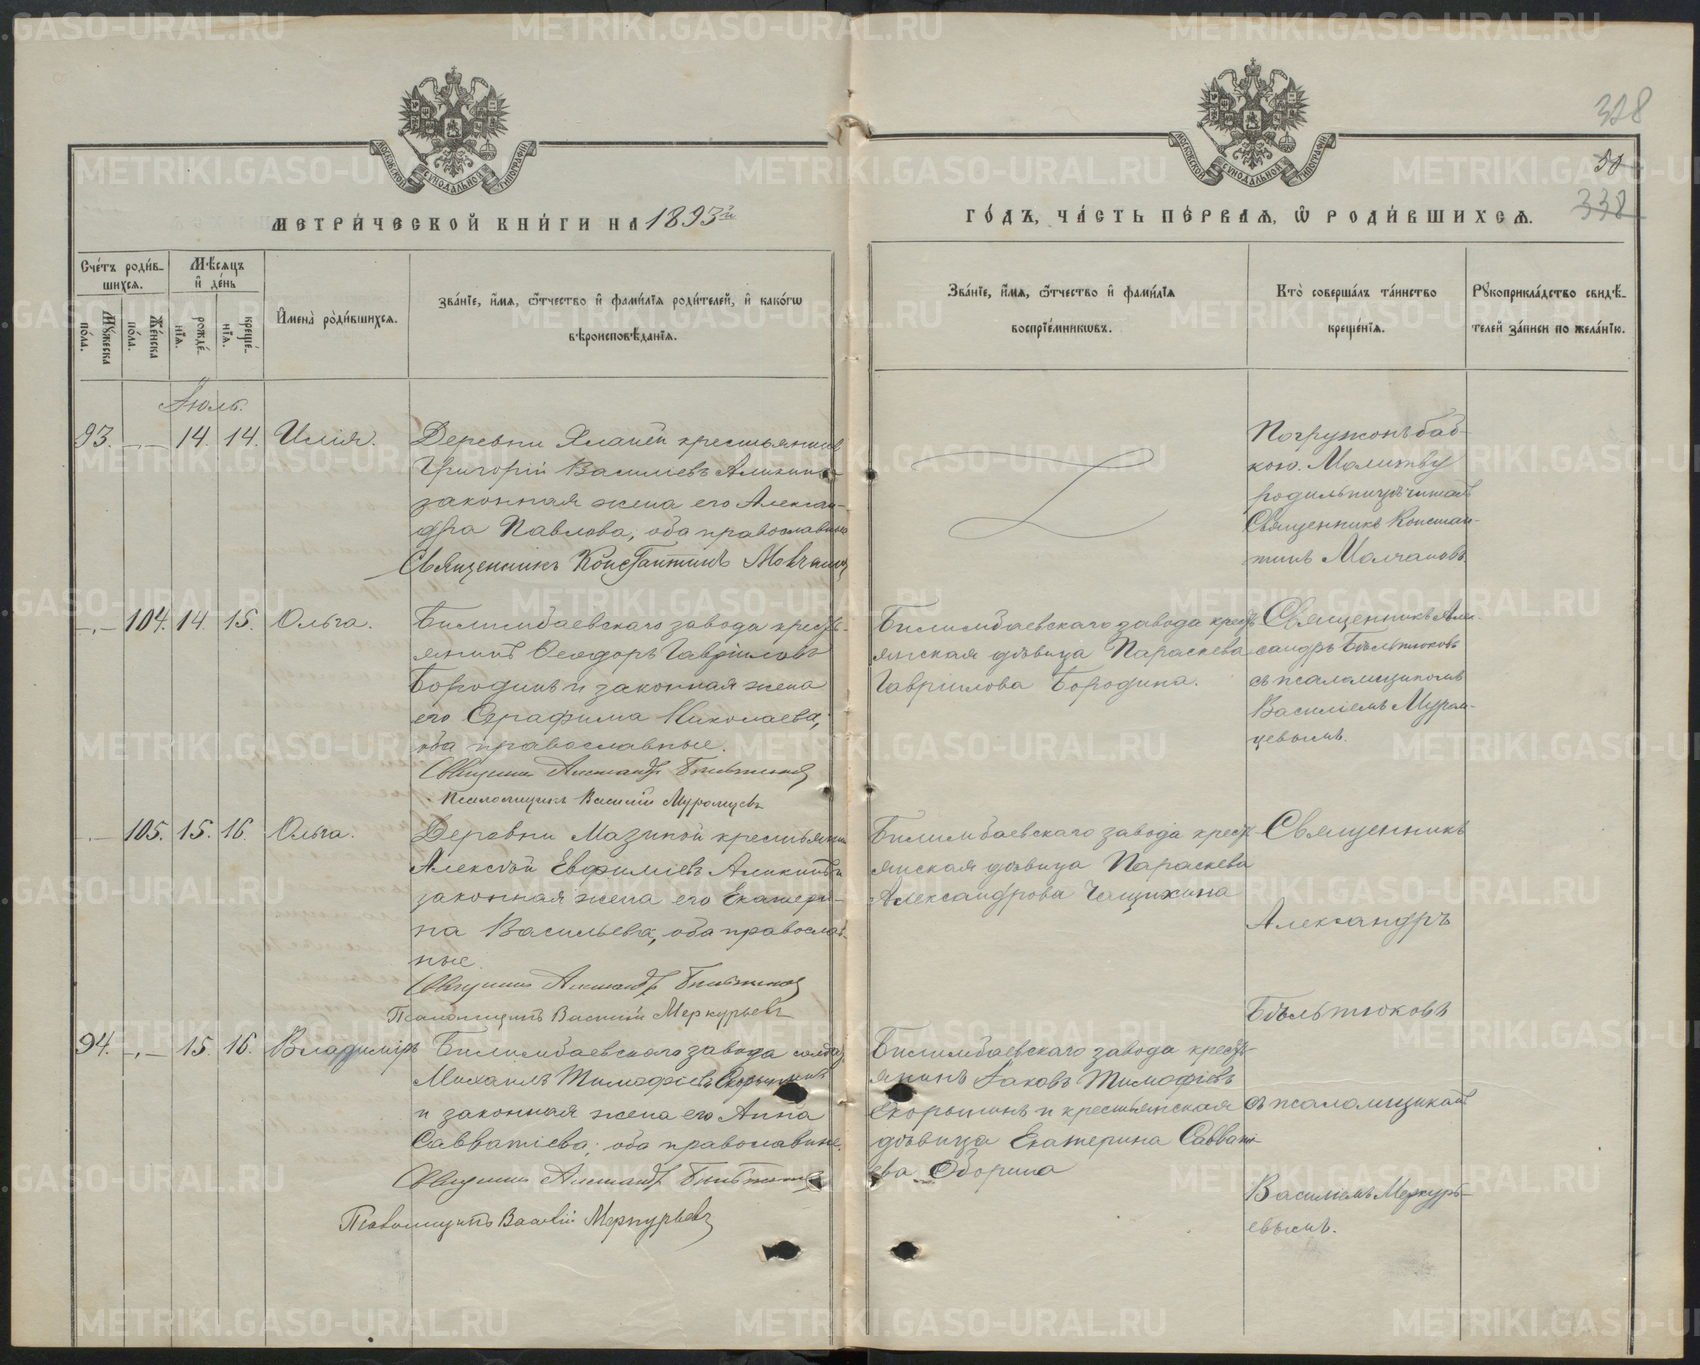 328
50
338
МОСКОВСКОЙ СѴНОДАЛЬНОЙ ТИПОГРАФІИ
МОСКОВСКОЙ СѴНОДАЛЬНОЙ ТИПОГРАФІИ
МЕТРИ́ЧЕСКОЙ КНИ́ГИ НА 1893й
ГО́ДЪ, ЧА́СТЬ ПЕ́РВАѦ, Ѽ РОДИ́ВШИХСѦ.
Сче́тъ роди́в-
шихсѧ.
Мѣ́сѧцъ
и҆ де́нь
И҆мена̀ роди́вшихсѧ.
Зва́нїе, и҆́мѧ, ѻ҆́тчество и҆ фами́лїѧ роди́телей, и҆ како́гѡ
вѣроисповѣ́данїѧ.
Му́жеска
по́ла.
Же́нска
по́ла.
рожде́-
нїѧ.
креще́-
нїѧ.
Зва́нїе, и҆́мѧ, ѻ҆́тчество и҆ фами́лїѧ
воспрїе́мникѡвъ.
Кто̀ соверша́лъ та́инство
креще́нїѧ.
Рꙋкоприкла́дство свидѣ́-
телей за́писи по жела́нїю.
Іюль.
93. —„— 14. 14. Илія.
Деревни Хлатей крестьянинъ
Григорій Василіевъ Аликинъ и
законная жена его Алексан-
дра Павлова, оба православные
Священникъ Константинъ Молчановъ
Погруженъ баб-
кою. Молитву
родильницѣ читалъ
Священникъ Констан-
тинъ Молчановъ
—„— 104. 14. 15. Ольга.
Билимбаевскаго завода кресть-
янинъ Ѳеодоръ Гавріиловъ
Бородинъ и законная жена
его Серафима Николаева,
оба православные.
Священникъ Александръ Бѣльтюковъ
Псаломщикъ Василій Муромцевъ
Билимбаевскаго завода кресть-
янская дѣвица Параскева
Гавріилова Бородина.
Священникъ Алек-
сандръ Бѣльтюковъ
съ псаломщикомъ
Василіемъ Муром-
цевымъ.
—„— 105. 15. 16. Ольга.
Деревни Мазиной крестьянинъ
Алексѣй Евфиміевъ Аликинъ и
законная жена его Екатери-
на Васильева, оба православ-
ные.
Священникъ Александръ Бѣльтюковъ
Псаломщикъ Василій Меркурьевъ
Билимбаевскаго завода кресть-
янская дѣвица Параскева
Александрова Чащихина
Священникъ
Александръ
Бѣльтюковъ
94. —„— 15. 16. Владиміръ
Билимбаевскаго завода солдатъ
Михаилъ Тимофіевъ Скорынинъ
и законная жена его Анна
Савватіева, оба православные.
Священникъ Александръ Бѣльтюковъ
Псаломщикъ Василій Меркурьевъ
Билимбаевскаго завода кресть-
янинъ Іаковъ Тимофіевъ
Скорынинъ и крестьянская
дѣвица Екатерина Саввати-
ева Оборина
съ псаломщикомъ
Василіемъ Меркурь-
евымъ.
METRIKI.GASO-URAL.RU